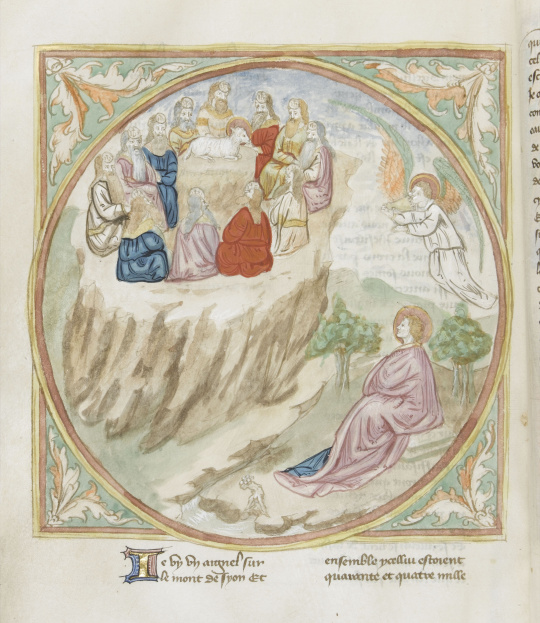 Je vy vn aignel sur
le mont de syon Et
ensemble ycellui estoient
quarante et quatre mille